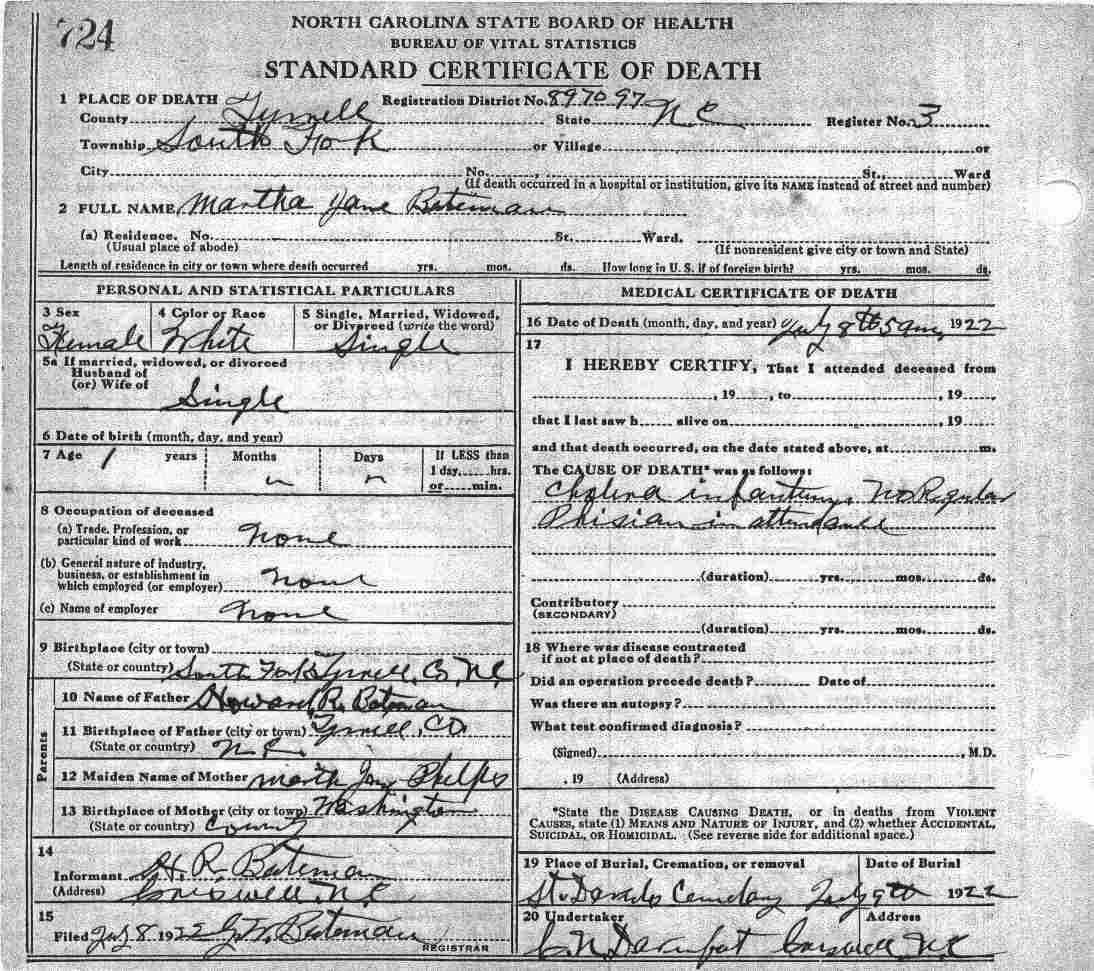 724
NORTH CAROLINA STATE BOARD OF HEALTH
BUREAU OF VITAL STATISTICS
STANDARD CERTIFICATE OF DEATH
1 PLACE OF DEATH Registration District No. 897097
County Tyrrell State N C Register No. 3
Township South Fork or Village or
City No. , St., Ward
(If death occurred in a hospital or institution, give its NAME instead of street and number)
2 FULL NAME Martha Jane Bateman
(a) Residence. No. St. Ward.
(Usual place of abode) (If nonresident give city or town and State)
Length of residence in city or town where death occurred yrs. mos. ds. How long in U. S. if of foreign birth? yrs. mos. ds.
PERSONAL AND STATISTICAL PARTICULARS
3 Sex 4 Color or Race 5 Single, Married, Widowed,
or Divorced (write the word)
Female White Single
5a If married, widowed, or divorced
Husband of
(or) Wife of
Single
6 Date of birth (month, day, and year)
7 Age 1 years Months Days If LESS than
1 day, hrs.
or min.
8 Occupation of deceased
(a) Trade, Profession, or
particular kind of work None
(b) General nature of industry,
business, or establishment in
which employed (or employer) None
(c) Name of employer None
9 Birthplace (city or town)
(State or country) South Fork Tyrrell, Co, N.C
Parents
10 Name of Father Howard R. Bateman
11 Birthplace of Father (city or town) Tyrrell, CO
(State or country) N C
12 Maiden Name of Mother Phelps
13 Birthplace of Mother (city or town) Washington
(State or country) County
14
Informant H. R. Bateman
(Address) Creswell, N.C
15
Filed July 8 1922 Bateman
REGISTRAR
MEDICAL CERTIFICATE OF DEATH
16 Date of Death (month, day, and year) July 8th 5 am, 1922
17
I HEREBY CERTIFY, That I attended deceased from
, 19 , to , 19
that I last saw h alive on , 19
and that death occurred, on the date stated above, at m.
The CAUSE OF DEATH* was as follows:
Cholera No Regular
Phisian in attendance
(duration) yrs. mos. ds.
Contributory
(SECONDARY)
(duration) yrs. mos. ds.
18 Where was disease contracted
if not at place of death?
Did an operation precede death? Date of
Was there an autopsy?
What test confirmed diagnosis?
(Signed) , M.D.
, 19 (Address)
*State the DISEASE CAUSING DEATH, or in deaths from VIOLENT
CAUSES, state (1) MEANS AND NATURE OF INJURY, and (2) whether ACCIDENTAL,
SUICIDAL, OR HOMICIDAL. (See reverse side for additional space.)
19 Place of Burial, Cremation, or removal Date of Burial
St. Davids July 9th 1922
20 Undertaker Address
C. N. Davenport Creswell N.C